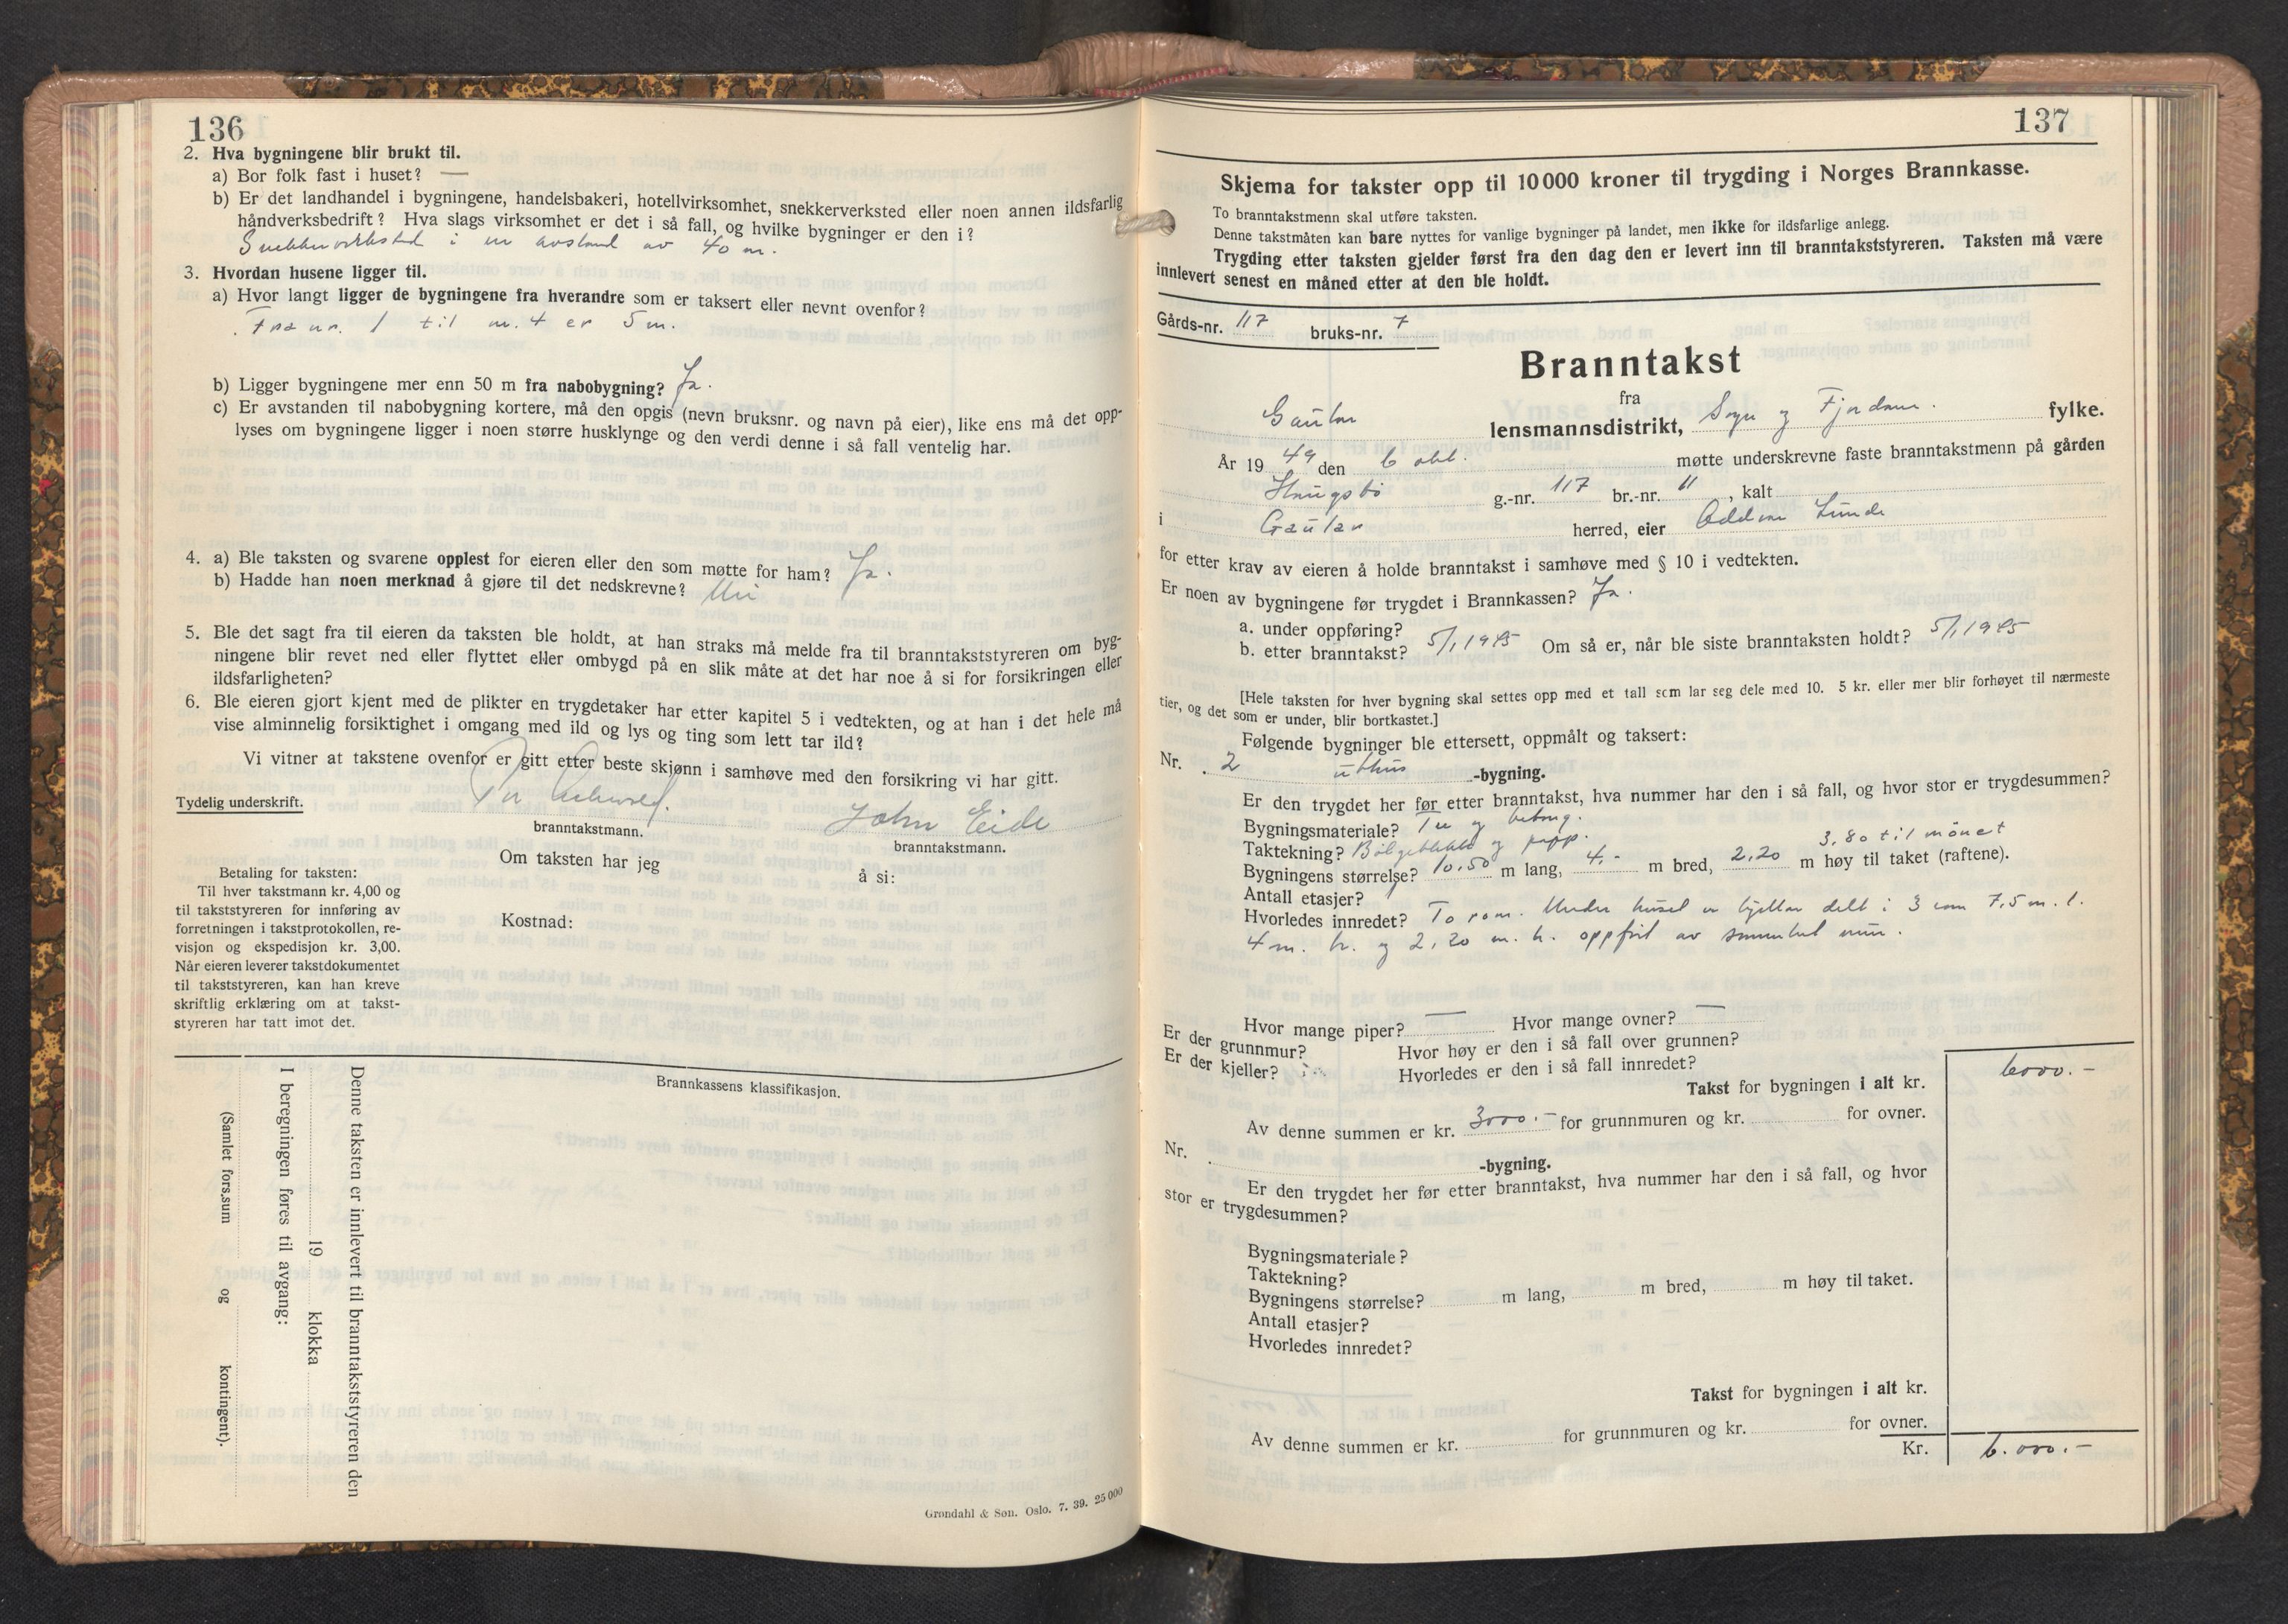 136
2. Hva bygningene blir brukt til.
a) Bor folk fast i huset? —
b) Er det landhandel i bygningene, handelsbakeri, hotellvirksomhet, snekkerverksted eller noen annen ildsfarlig
håndverksbedrift? Hva slags virksomhet er det i så fall, og hvilke bygninger er den i?
Snekkerverksted i en avstand av 40 m.
3. Hvordan husene ligger til.
a) Hvor langt ligger de bygningene fra hverandre som er taksert eller nevnt ovenfor?
Fra nr. 1 til nr. 4 er 5 m.
b) Ligger bygningene mer enn 50 m fra nabobygning? Ja.
c) Er avstanden til nabobygning kortere, må den opgis (nevn bruksnr. og navn på eier), like ens må det opp-
lyses om bygningene ligger i noen større husklynge og den verdi denne i så fall ventelig har.
4. a) Ble taksten og svarene opplest for eieren eller den som møtte for ham? Ja.
b) Hadde han noen merknad å gjøre til det nedskrevne? Nei
5. Ble det sagt fra til eieren da taksten ble holdt, at han straks må melde fra til branntakststyreren om byg-
ningene blir revet ned eller flyttet eller ombygd på en slik måte at det har noe å si for forsikringen eller
ildsfarligheten?
6. Ble eieren gjort kjent med de plikter en trygdetaker har etter kapitel 5 i vedtekten, og at han i det hele må
vise alminnelig forsiktighet i omgang med ild og lys og ting som lett tar ild?
Vi vitner at takstene ovenfor er gitt etter beste skjønn i samhøve med den forsikring vi har gitt.
Tydelig underskrift.
John Eide
branntakstmann. branntakstmann.
Om taksten har jeg å si:
Betaling for taksten:
Til hver takstmann kr. 4,00 og
til takststyreren for innføring av
forretningen i takstprotokollen, re-
visjon og ekspedisjon kr. 3,00.
Når eieren leverer takstdokumentet
til takststyreren, kan han kreve
skriftlig erklæring om at takst-
styreren har tatt imot det.
Kostnad:
Brannkassens klassifikasjon.
Denne taksten er innlevert til branntakststyreren den
19 klokka
I beregningen føres til avgang:
(Samlet fors.sum og kontingent).
Grøndahl & Søn. Oslo. 7. 39. 25 000
137
Skjema for takster opp til 10 000 kroner til trygding i Norges Brannkasse.
To branntakstmenn skal utføre taksten.
Denne takstmåten kan bare nyttes for vanlige bygninger på landet, men ikke for ildsfarlige anlegg.
Trygding etter taksten gjelder først fra den dag den er levert inn til branntakststyreren. Taksten må være
innlevert senest en måned etter at den ble holdt.
Gårds-nr. 117 bruks-nr. 7
Branntakst
fra
Gaular lensmannsdistrikt, Sogn og Fjordane. fylke.
År 19 49 den 6 okt. møtte underskrevne faste branntakstmenn på gården
Haugsbø g.-nr. 117 br.-nr. 11, kalt
i Gaular herred, eier Oddvar Lunde
for etter krav av eieren å holde branntakst i samhøve med § 10 i vedtekten.
Er noen av bygningene før trygdet i Brannkassen? Ja.
a. under oppføring?
b. etter branntakst? 5/1 1945 Om så er, når ble siste branntaksten holdt? 5/1 1945
[Hele taksten for hver bygning skal settes opp med et tall som lar seg dele med 10. 5 kr. eller mer blir forhøyet til nærmeste
tier, og det som er under, blir bortkastet.]
Følgende bygninger ble ettersett, oppmålt og taksert:
Nr. 2 uthus -bygning.
Er den trygdet her før etter branntakst, hva nummer har den i så fall, og hvor stor er trygdesummen?
Bygningsmateriale? Tre og betong.
Taktekning? Bølgeblikk og papp. 3,80 til mønet
Bygningens størrelse? 10,50 m lang, 4,- m bred, 2,20 m høy til taket (raftene).
Antall etasjer? 1
Hvorledes innredet? To rom. Under huset er kjeller delt i 3 rom 7,5 m. l.
4 m. br. og 2,20 m. h. oppført av sementert mur.
Hvor mange piper? — Hvor mange ovner? —
Er der grunnmur? Hvor høy er den i så fall over grunnen?
Er der kjeller? ja Hvorledes er den i så fall innredet?
Takst for bygningen i alt kr. 6000.-
Av denne summen er kr. 3000.- for grunnmuren og kr. for ovner.
Nr. -bygning.
Er den trygdet her før etter branntakst, hva nummer har den i så fall, og hvor
stor er trygdesummen?
Bygningsmateriale?
Taktekning?
Bygningens størrelse? m lang, m bred, m høy til taket.
Antall etasjer?
Hvorledes innredet?
Takst for bygningen i alt kr.
Av denne summen er kr. for grunnmuren og kr. for ovner.
Kr. 6.000.-